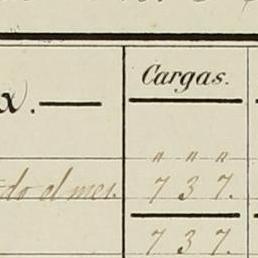 Cargas.
x.
" " "
do el mes. 7 3 7.
7 3 7.